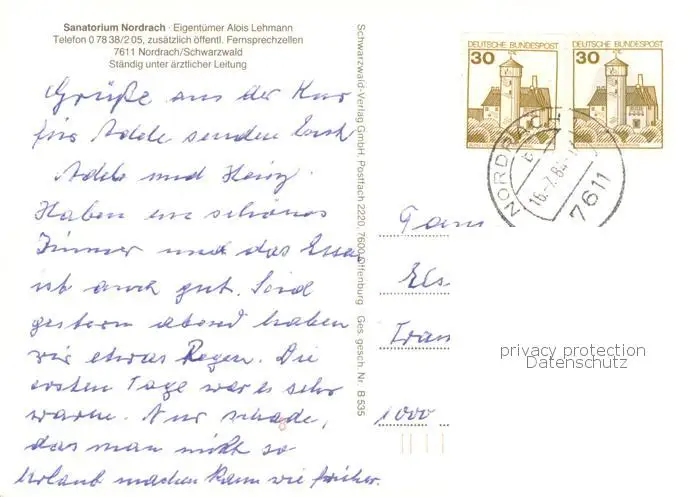 Sanatorium Nordrach · Eigentümer Alois Lehmann
Telefon 0 78 38/2 05, zusätzlich öffentl. Fernsprechzellen
7611 Nordrach/Schwarzwald
Ständig unter ärztlicher Leitung
Grüße aus der Kur
fürs Adele senden Euch
Adele und Heinz.
Haben ein schönes
Zimmer und das Essen
ist auch gut. Sind
gestern abend haben
wir etwas Regen. Die
ersten Tage war es sehr
warm. Nur schade,
das man nicht so
Urlaub machen kann wie früher.
Schwarzwald-Verlag GmbH, Postfach 2220, 7600 Offenburg Ges. gesch. Nr. B 535
DEUTSCHE BUNDESPOST
30
DEUTSCHE BUNDESPOST
30
NORDRACH
16.-7.84
7611
Fam
Els
Iran
1000
privacy protection
Datenschutz